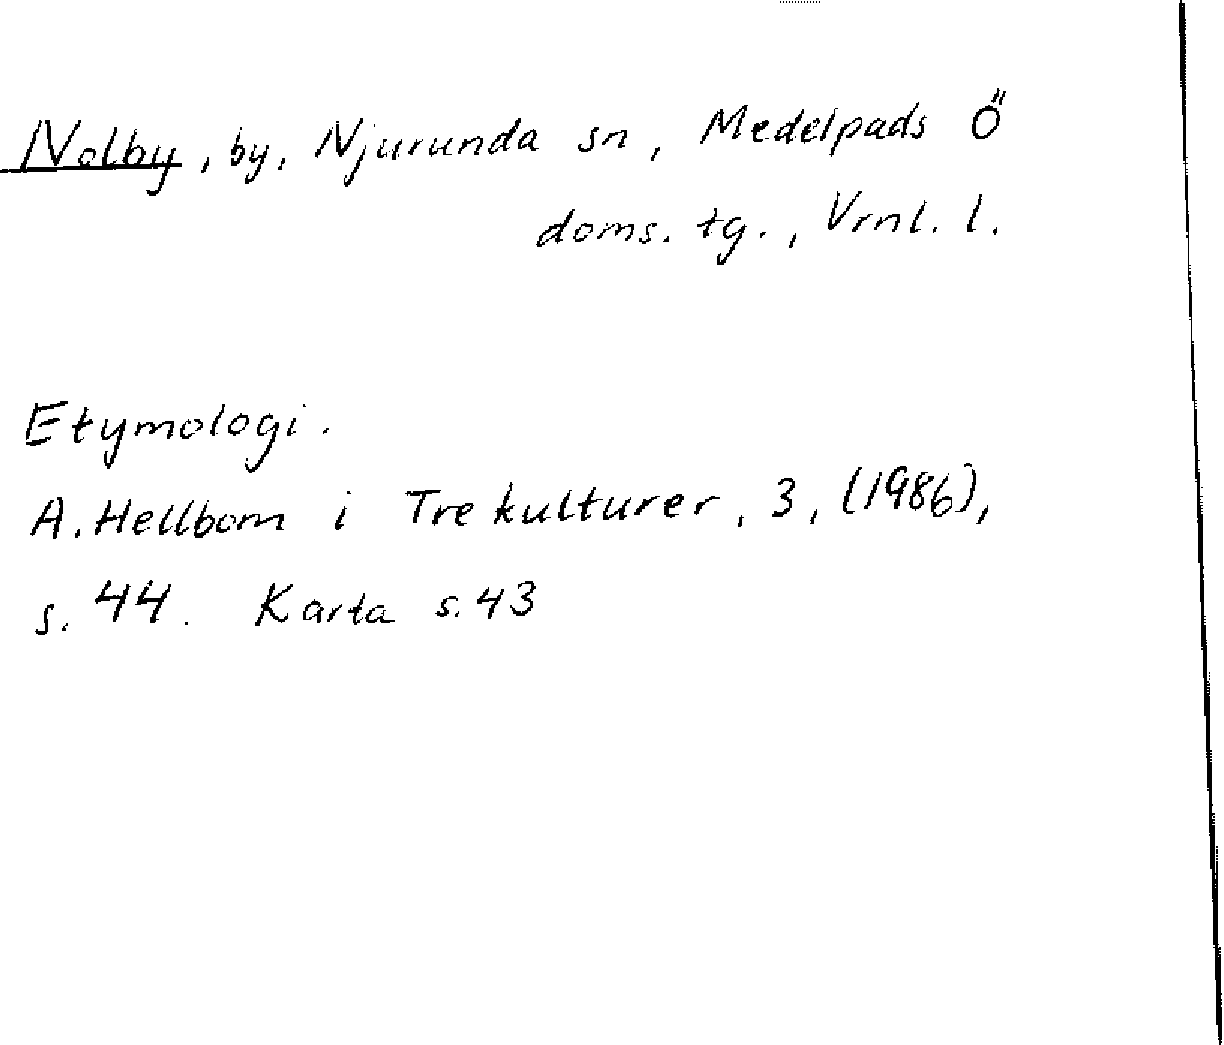 Nolby, by, Njurunda sn, Medelpads Ö
doms. tg., Vrnl. l.
Etymologi.
A. Hellbom i Tre kulturer, 3, (1986),
s. 44. Karta s. 43